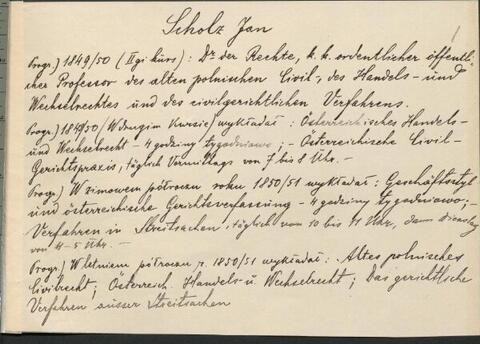 Scholz Jan
Progr.) 1849/50 (II gi kurs): Dr der Rechte, k. k. ordentlicher öffentli-
cher Professor des alten polnischen Civil-, des Handels- und
Wechselrechtes und des civilgerichtlichen Verfahrens.
Progr.) 1849/50 / W drugim Kursie / wykładał: Österreichisches Handels-
und Wechselrecht - 4 godziny tygodniowo; - Österreichische Civil-
Gerichtspraxis, täglich Vormittags von 7 bis 8 Uhr. -
Progr.) W zimowem półroczu roku 1850/51 wykładał: Geschäftsstyl
und österreichische Gerichtsverfassung - 4 godziny tygodniowo; -
Verfahren in Streitsachen, täglich von 10 bis 11 Uhr, dann Dienstag
von 4-5 Uhr. -
Progr.) W letniem półroczu r. 1850/51 wykładał: Altes polnisches
Civilrecht; Österreich. Handels- u. Wechselrecht; Das gerichtliche
Verfahren ausser Streitsachen